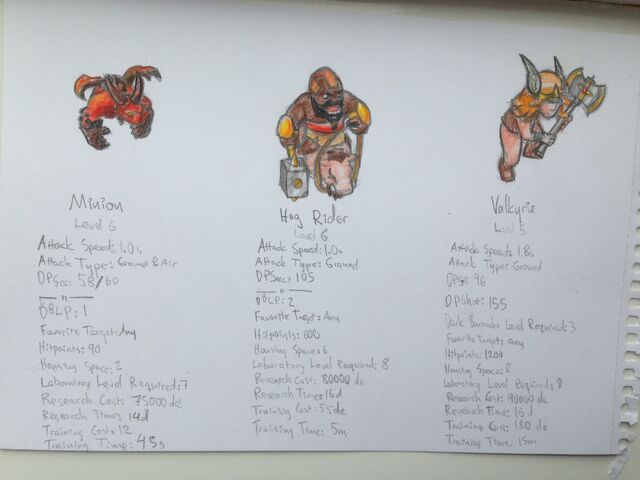 Minion
Level 6
Attack Speed: 1.0s
Attack Type: Ground & Air
DPSec: 58/60
— " —
DBLP: 1
Favorite Target: Any
Hitpoints: 90
Housing Space: 2
Laboratory Level Required: 7
Research Cost: 75000 de
Research Time: 14d
Training Cost: 12
Training Time: 45s
Hog Rider
Level 6
Attack Speed: 1.0s
Attack Type: Ground
DPSec: 105
— " —
DBLP: 2
Favorite Target: Any
Hitpoints: 600
Housing Space: 6
Laboratory Level Required: 8
Research Cost: 80000 de
Research Time: 16d
Training Cost: 55 de
Training Time: 5m
Valkyrie
Level 5
Attack Speed: 1.8s
Attack Type: Ground
DPSec 96
DPShot: 155
Dark Barracks Level Required: 3
Favorite Target: Any
Hitpoints: 1200
Housing Space: 8
Laboratory Level Required: 8
Research Cost: 90000 de
Research Time: 16d
Training Cost: 180 de
Training Time: 15m